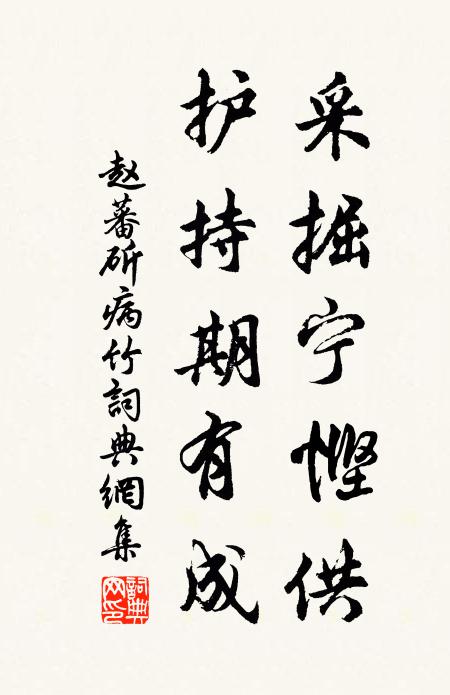 采掘宁悭供
护持期有成
赵蕃斫病竹詞典網集
詞典網印